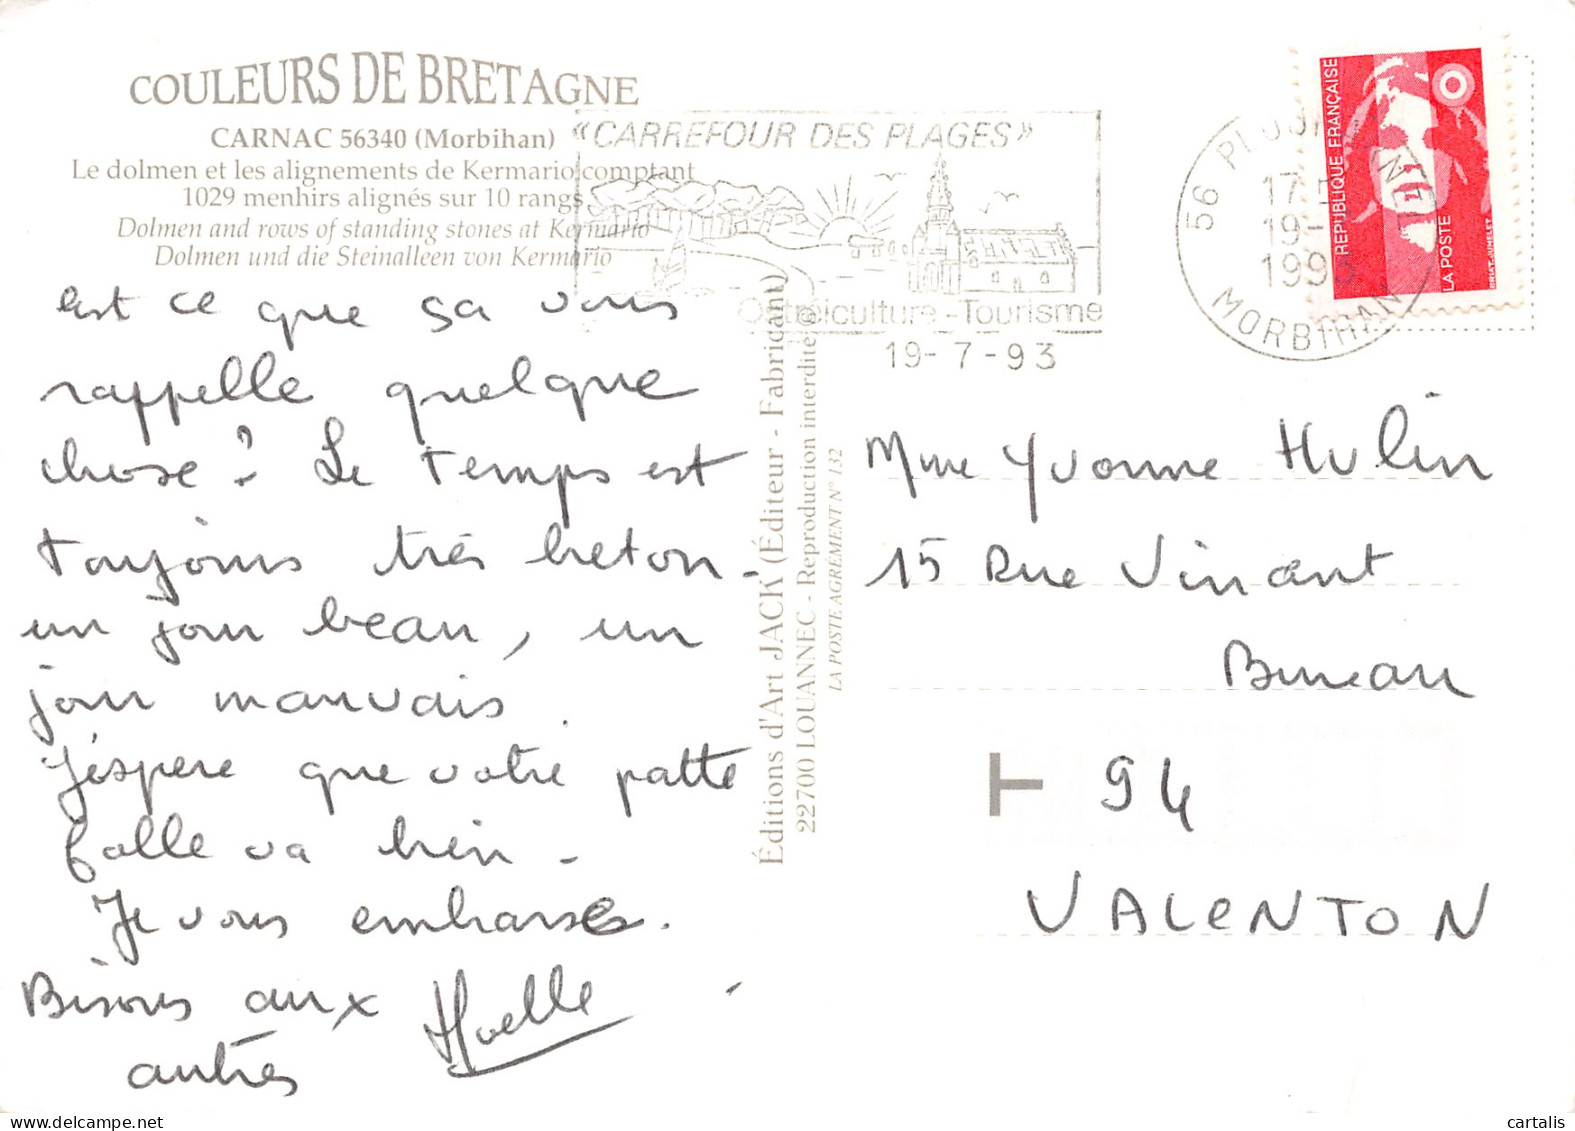 COULEURS DE BRETAGNE
CARNAC 56340 (Morbihan)
Le dolmen et les alignements de Kermario comptant
1029 menhirs alignés sur 10 rangs.
Dolmen and rows of standing stones at Kermario
Dolmen und die Steinalleen von Kermario
est ce que sa vous
rappelle quelque
chose ? Le temps est
toujours très breton -
un jour beau, un
jour mauvais.
J'éspere que votre patte
folle va bien -
Je vous embrasse.
Bisous aux
autres
Éditions d'Art JACK (Éditeur - Fabricant)
22700 LOUANNEC - Reproduction interdite ©
LA POSTE AGRÉMENT N° 132
"CARREFOUR DES PLAGES"
Ostréiculture - Tourisme
19-7-93
56
17
19-
199
MORBIHAN
REPUBLIQUE FRANÇAISE
LA POSTE
BRIAT-JUMELET
Mme Yvonne Hulin
15 Rue Vincent
Bureau
T 94
VALENTON
cartalis